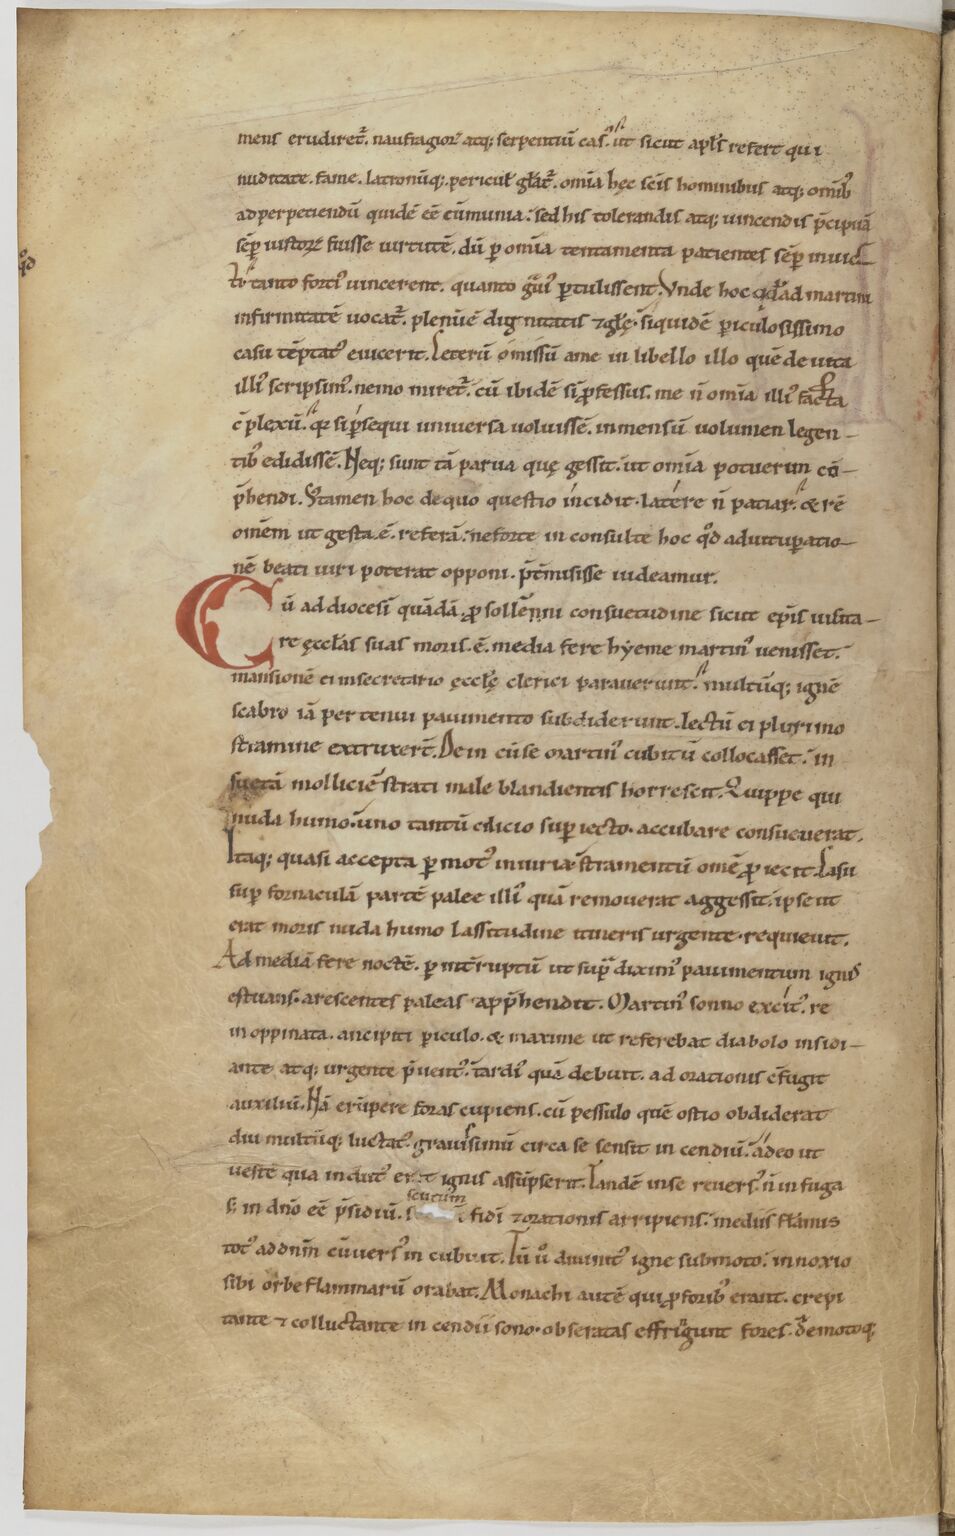 mens erudiret᷑. naufragioꝝ atq; serpentiū casꝰ. ut sicut apłs refert qui
nuditate. fame. latronūq; pericuł głat᷑. omīa hęc scīs hominibus atq; omībꝰ
ad perpetiendū quidē eē cūmunia. sed his tolerandis atq; uincendis p̄cipuā
sēꝑ iustoꝝ fuisse uirtutē. dū ꝑ omīa tentamenta patientes sēꝑ inuic
ti tanto fortiꝰ uincerent. quanto gͣuiꝰ ꝑtulissent. Vnde hoc qd ad martini
infirmitatē uocat᷑. plenūē dignitatis ⁊ głę. siquidē ꝑiculosissimo
casu tēptatꝰ euicerit. Ceterū omissū a me in libello illo quē de uita
illiꝰ scripsimꝰ. nemo miret᷑. cū ibidē sī ꝓfessus. me n̄ omīa illiꝰ facta
c̄plexū. qꝛ si ꝑsequi uniuersa uoluissē. inmensū uolumen legen-
tibꝰ edidissē. Neq; sunt tā parua quę gessit. ut omīa potuerun cō-
p̄hendi. Vtamen hoc de quo questio incidit. latére n̄ patiar. & rē
omēm ut gesta. ē. referā. ne forte in consulte hoc qd̄ ad uituꝑatio-
nē beati uiri poterat opponi. p̄tmisisse uideamur.
Cū ad diocesī quādā ꝓ sollēnni consuetudine sicut ep̄is uisita-
re ęccłas suas moris. ē. media fere hyeme martinꝰ uenisset.
mansionē ei in secretario ęccłę clerici parauerunt. multūq; ignē
scabro iā per tenui pauimento subdiderunt. lectū ei plurimo
stramine extruxer̄t. Dein cū se martinꝰ cubitū collocasset. in
suetā molliciē strati male blandientis horrescit. Quippe qui
nuda humo. uno tantū cilicio suꝑ iecto. accubare consueuerat.
Itaq; quasi accepta ꝑmotꝰ iniuria stramentū omē ꝓiecit. Casu
suꝑ fornaculā partē palee illiꝰ quā remouerat aggessit. ipse ut
erat moris nuda humo lassitudine itineris urgente. requieuit.
Ad mediā fere noctē. ꝑ int̄ruptū ut supͣ diximꝰ pauimentum ignis
estuans. arescentes paleas app̄hendit. Martinꝰ sonno excitꝰ. re
inoppinata. ancipiti ꝑiculo. & maxime ut referebat diabolo insidi-
ante atq; urgente p̄uentꝰ. tardiꝰ quā debuit. ad orationis c̄fugit
auxiliū. Nā erūpere foras cupiens. cū pessulo quē ostio obdiderat
diu multūq; luctatꝰ. grauissimū circa se sensit in cendiū. adeo ut
uestē qua indutꝰ erat ignis assūpserit. Tandē in se reuersꝰ. n̄ in fuga
s; in dnō eē p̄sidiū. scutum fidī ⁊ orationis arripiens. mediis flāmis
totꝰ ad dnm̄ cūuersꝰ in cubuit. Tū uͦ diuinitꝰ igne submoto. innoxio
sibi orbe flammarū orabat. Monachi autē qui ꝓ foribꝰ erant. crepi
tante ⁊ colluctante in cendii sono. obseratas effrīgunt fores. demotoq;